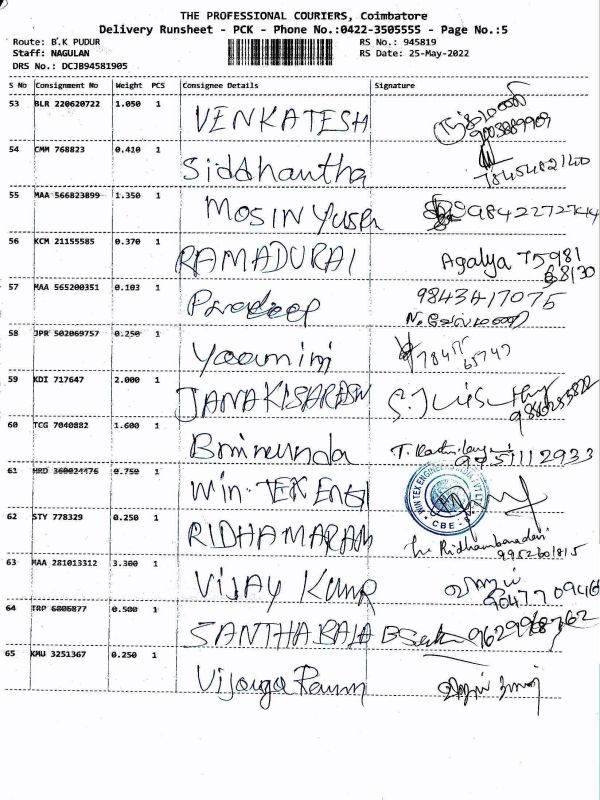 THE PROFESSIONAL COURIERS, Coimbatore
Delivery Runsheet - PCK - Phone No.:0422-3505555 - Page No.:5
Route: B.K PUDUR RS No.: 945819
Staff: NAGULAN RS Date: 25-May-2022
DRS No.: DCJB94581905
S No Consignment No Weight PCS Consignee Details Signature
53 BLR 220620722 1.050 1
VENKATESH
9003889909
54 CMM 768823 0.410 1
Siddhantha
7845482140
55 MAA 566823899 1.350 1
MOSIN 9842272744
56 KCM 21155585 0.370 1
RAMADURAI Agalya 75981
68130
57 MAA 565200351 0.103 1
Pradeep 9843417075
58 JPR 502069757 0.250 1
Yaamini 65747
59 KDI 717647 2.000 1
JANAKISARASW
60 TCG 7040882 1.600 1
T.
9751112933
61 HRD 360024476 0.750 1
Win-TEK Eng
WIN TEX
CBE
62 STY 778329 0.250 1
RIDHAMARAM
9952601815
63 MAA 281013312 3.300 1
VIJAY KUMR
9047709416
64 TRP 6806877 0.500 1
SANTHARAJA 9629968762
65 KMU 3251367 0.250 1